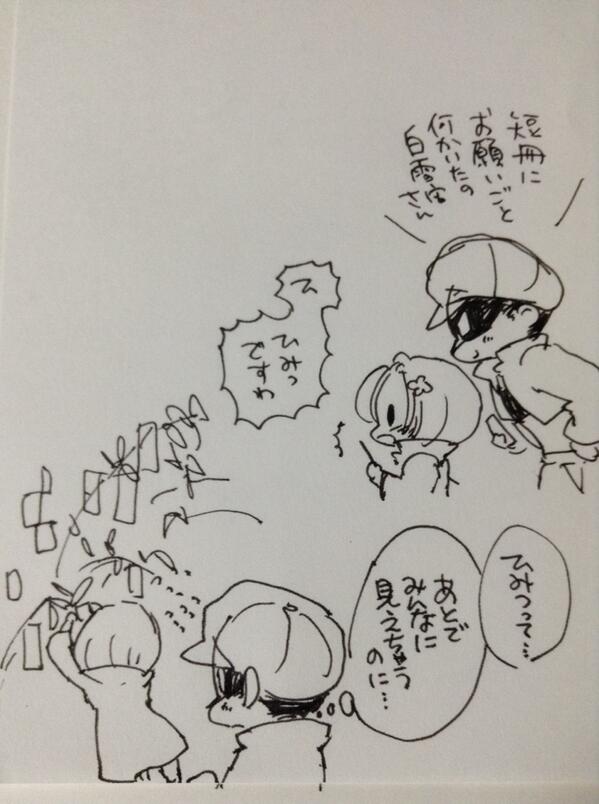 短冊に
お願いごと
何かいたの
白雪宙さん
ひ
ひみつ
ですわ
ひみつって…
あとで
みんなに
見えちゃう
のに…